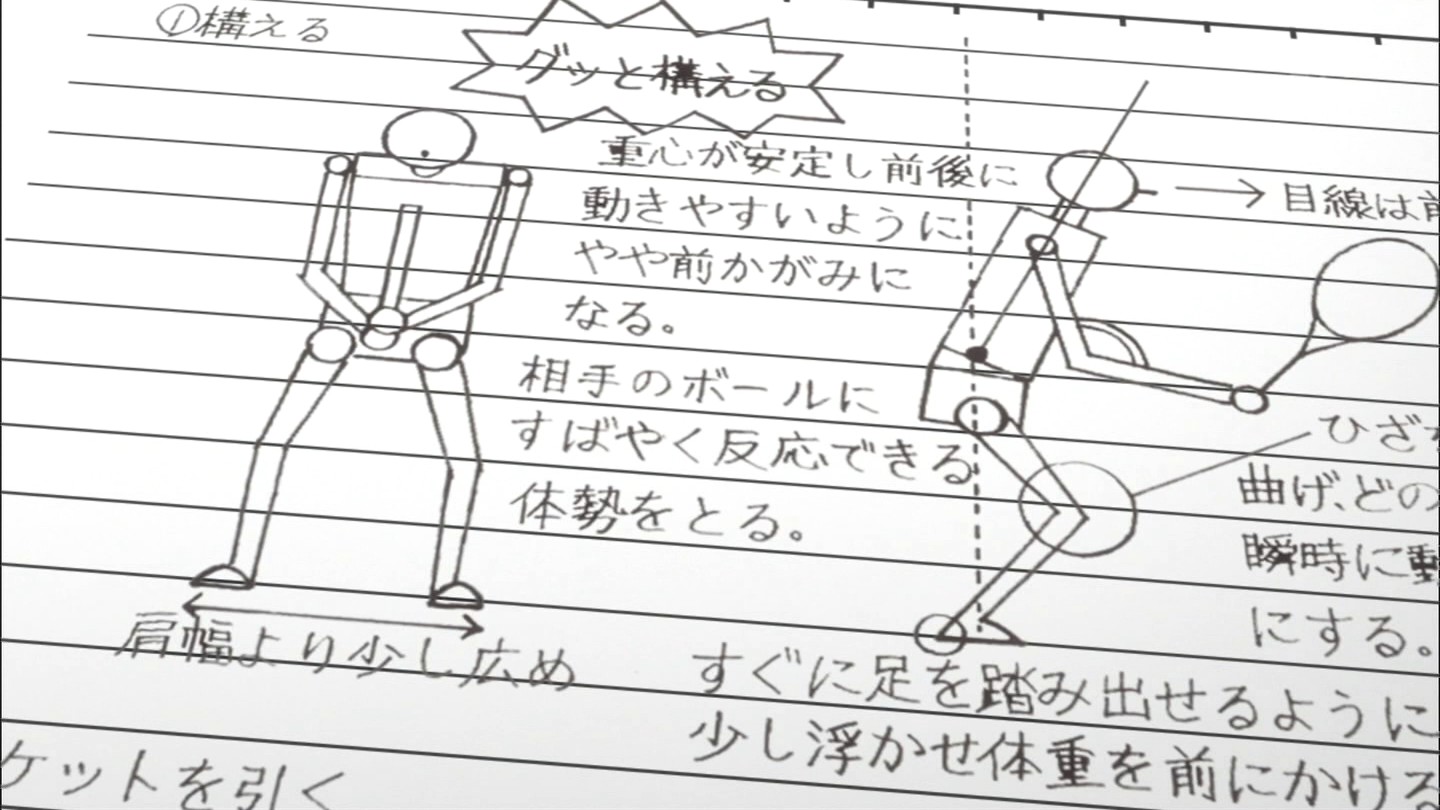 ①構える
グッと構える
重心が安定し前後に
動きやすいように
やや前かがみに
なる。
相手のボールに
すばやく反応できる
体勢をとる。
肩幅より少し広め
目線は前
ひざ
曲げ、どの
瞬時に動
にする。
すぐに足を踏み出せるように
少し浮かせ体重を前にかける
ケットを引く